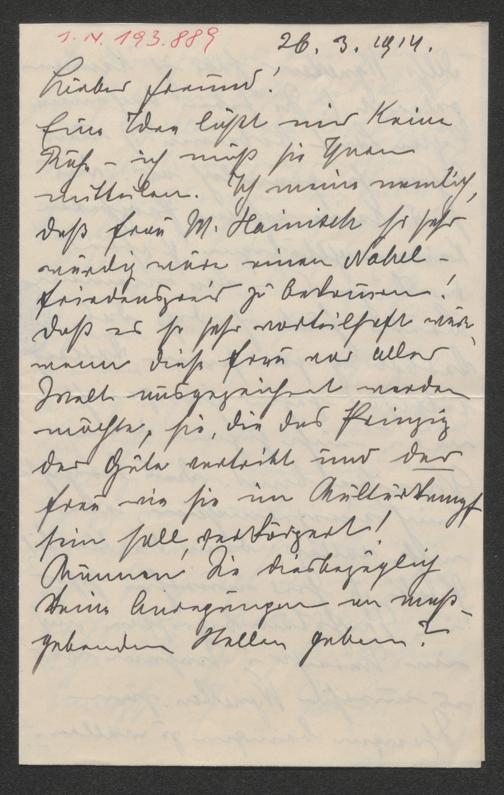 I. N. 193.889
26. 3. 1914.
Lieber Freund!
Eine Idee läßt mir keine
Ruhe – ich muß sie Ihnen
mitteilen. Ich meine nemlich,
daß Frau M. Hainisch so sehr
würdig wäre einen Nobel-
friedenspreis zu bekommen!
daß es so sehr vorteilhaft wäre,
wenn diese Frau vor aller
Welt ausgezeichnet werden
möchte, sie, die das Prinzip
der Güte vertritt und der
Frau wie sie im Kulturkampf
sein soll, verkörpert!
Können Sie diesbezüglich
keine Anregungen an maß-
gebenden Stellen geben?